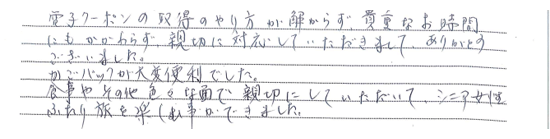 電子クーポンの取得のやり方が解からず、貴重なお時間
にもかかわらず、親切に対応していただきまして、ありがとう
ございました。
かごバックが大変便利でした。
食事やその他色々な面で親切にしていただいて、シニア女性
ふたり旅を楽しむ事ができました。